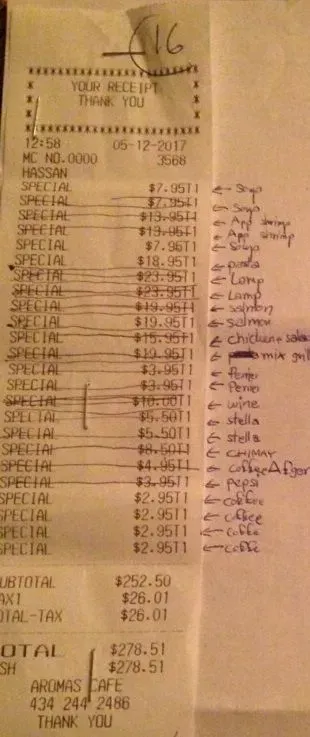 16
YOUR RECEIPT
THANK YOU
12:58 05-12-2017
MC NO.0000 3568
HASSAN
SPECIAL $7.95T1 ← Soup
SPECIAL $7.95T1 ← Soup
SPECIAL $13.95T1 ← App shrimp
SPECIAL $13.95T1 ← App shrimp
SPECIAL $7.95T1 ← Soup
SPECIAL $18.95T1 ← pasta
SPECIAL $23.95T1 ← Lamp
SPECIAL $23.95T1 ← Lamp
SPECIAL $19.95T1 ← Salmon
SPECIAL $19.95T1 ← Salmon
SPECIAL $15.95T1 ← chicken salad
SPECIAL $19.95T1 ← mix grill
SPECIAL $3.95T1 ← Perrier
SPECIAL $3.95T1 ← Perrier
SPECIAL $10.00T1 ← wine
SPECIAL $5.50T1 ← stella
SPECIAL $5.50T1 ← stella
SPECIAL $8.50T1 ← CHIMAY
SPECIAL $4.95T1 ← coffee
SPECIAL $3.95T1 ← pepsi
SPECIAL $2.95T1 ← coffee
SPECIAL $2.95T1 ← coffee
SPECIAL $2.95T1 ← coffe
PECIAL $2.95T1 ← coffe
UBTOTAL $252.50
AX1 $26.01
OTAL-TAX $26.01
OTAL $278.51
SH $278.51
AROMAS CAFE
434 244 2486
THANK YOU